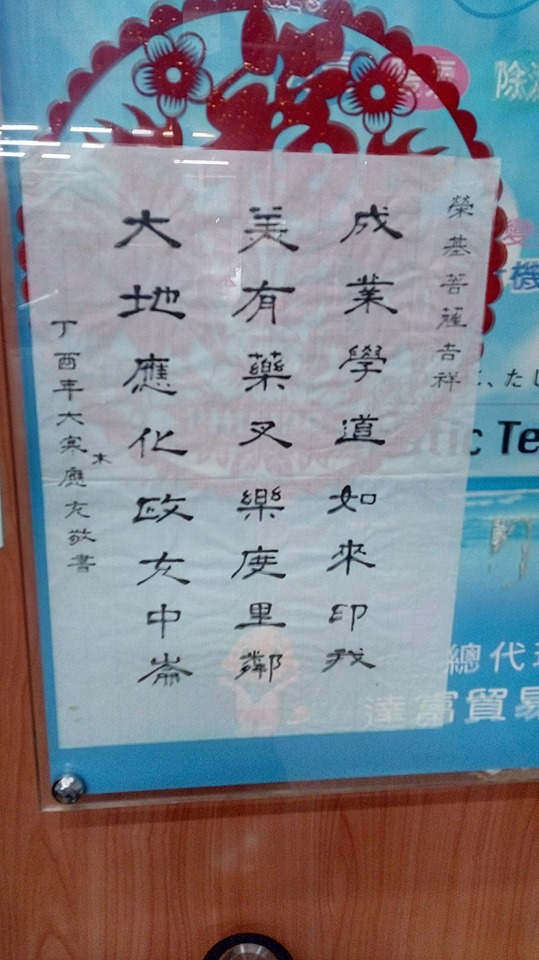 榮基菩薩吉祥
成業學道如來印我
美有藥叉樂度里鄰
大地應化政女中崙
丁酉年大寒應友敬書
木
除
機
、たし
tic Te
總代理
達富貿易